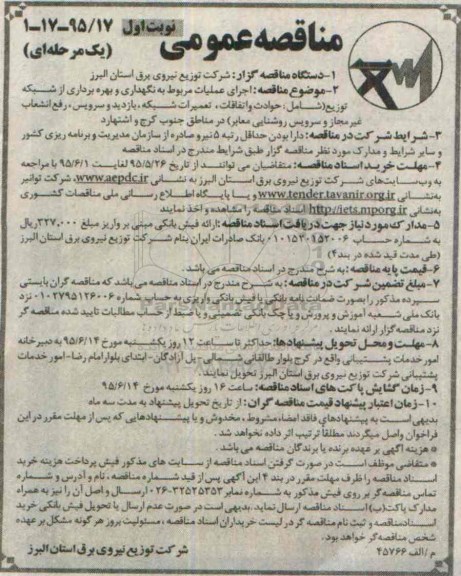 مناقصه عمومی
نوبت اول
۱-۱۷-۹۵/۱۷
(یک مرحله‌ای)
۱-دستگاه مناقصه گزار: شرکت توزیع نیروی برق استان البرز
۲-موضوع مناقصه: اجرای عملیات مربوط به نگهداری و بهره برداری از شبکه
توزیع(شامل: حوادث واتفاقات، تعمیرات شبکه، بازدید و سرویس، رفع انشعاب
غیر مجاز و سرویس روشنایی معابر) در مناطق جنوب کرج و اشتهارد
۳-شرایط شرکت در مناقصه: دارا بودن حداقل رتبه ۵ نیرو صادره از سازمان مدیریت و برنامه ریزی کشور
و سایر شرایط و مدارک مورد نظر مناقصه گزار طبق شرایط مندرج در اسناد مناقصه
۴-مهلت خرید اسناد مناقصه: متقاضیان می توانند از تاریخ ۹۵/۵/۲۶ لغایت ۹۵/۶/۱ با مراجعه
به وب‌سایت‌های شرکت توزیع نیروی برق استان البرز به نشانی www.aepdc.ir، شرکت توانیر
به‌نشانی www.tender.tavanir.org.ir و یا پایگاه اطلاع رسانی ملی مناقصات کشوری
به‌نشانی http://iets.mporg.ir اسناد مناقصه را مشاهده و اخذ نمایند
۵-مدارک مورد نیاز جهت دریافت اسناد مناقصه: ارائه فیش بانکی مبنی بر واریز مبلغ ۳۲۷,۰۰۰ ریال
به شماره حساب ۰۱۰۱۵۳۰۱۵۲۰۰۶ بانک صادرات ایران بنام شرکت توزیع نیروی برق استان البرز
(طی مدت قید شده در بند۴)
۶-قیمت پایه مناقصه: به شرح مندرج در اسناد مناقصه می باشد.
۷-مبلغ تضمین شرکت در مناقصه: به شرح مندرج در اسناد مناقصه می‌باشد که مناقصه گران بایستی
سپرده مذکور را بصورت ضمانت نامه بانکی یا فیش بانکی واریزی به حساب شماره ۰۱۰۲۷۹۵۱۲۶۰۰۶ نزد
بانک ملی شعبه آموزش و پرورش و یا چک بانکی تضمینی و یا ضبط از حساب مطالبات تایید شده مناقصه گر
نزد مناقصه گزار ارائه نمایند.
۸-مهلت و محل تحویل پیشنهادها: حداکثر تا ساعت ۱۲ روز یکشنبه مورخ ۹۵/۶/۱۴ به دبیرخانه
امور خدمات پشتیبانی واقع در کرج بلوار طالقانی شمالی-پل آزادگان-ابتدای بلوار امام رضا-امور خدمات
پشتیبانی شرکت توزیع نیروی برق استان البرز تحویل نمایند.
۹-زمان گشایش پاکت های اسناد مناقصه: ساعت ۱۶ روز یکشنبه مورخ ۹۵/۶/۱۴
۱۰-زمان اعتبار پیشنهاد قیمت مناقصه گران: از تاریخ تحویل پیشنهاد به مدت سه ماه
بدیهی است به پیشنهادهای فاقد امضاء، مشروط، مخدوش و یا پیشنهادهایی که پس از مهلت مقرر در این
فراخوان واصل میگردند مطلقا ترتیب اثر داده نخواهد شد.
* هزینه آگهی بر عهده برنده یا برندگان مناقصه می باشد.
* متقاضی موظف است در صورت گرفتن اسناد مناقصه از سایت های مذکور فیش پرداخت هزینه خرید
اسناد مناقصه را ظرف مهلت مقرر در بند ۴ این آگهی پس از قید شماره مناقصه، نام و آدرس و شماره
تماس مناقصه گر بر روی فیش مذکور به شماره نمابر ۳۲۵۲۵۳۵۳-۰۲۶ ارسال و اصل آن را نیز به همراه
مدارک پاکت(ب) اسناد مناقصه ارسال نماید. بدیهی است در صورت عدم ارسال یا تحویل فیش بانکی خرید
اسناد مناقصه و ثبت نام مناقصه گر در لیست خریداران اسناد مناقصه، مسئولیت بروز هر گونه مشکل بر عهده
شخص مناقصه گر خواهد بود.
م/الف ۴۵۷۶۶
شرکت توزیع نیروی برق استان البرز